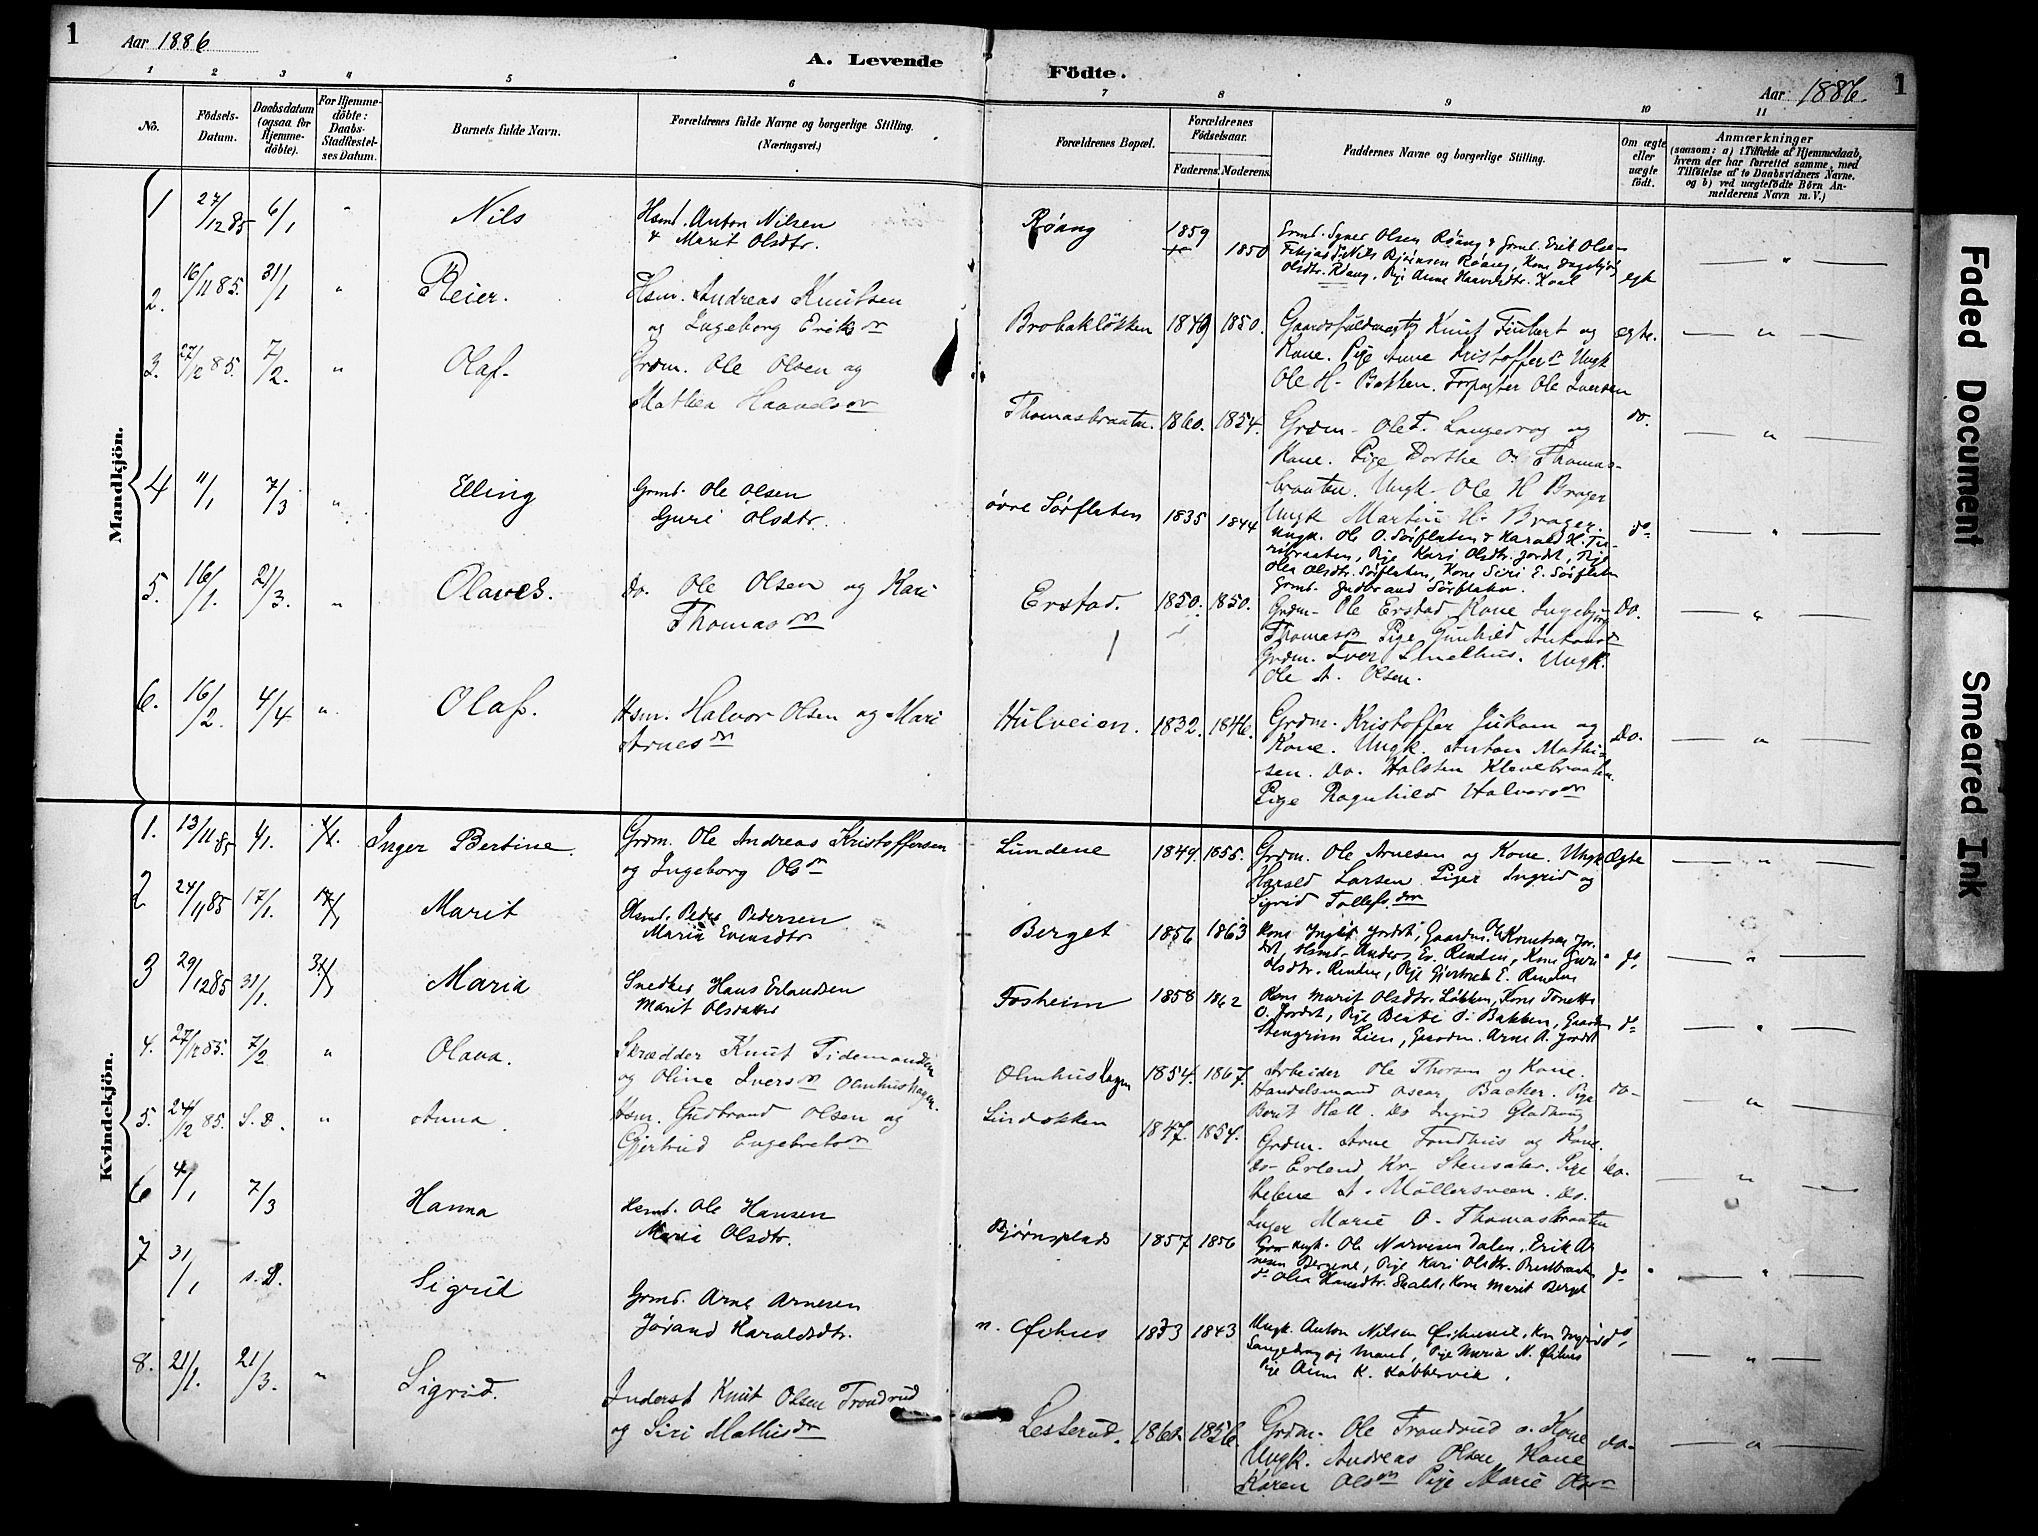 1
Aar 1886
A. Levende Födte.
Aar 1886.
1
1 2 3 4 5 6 7 8 9 10 11
No.
Födsels-Datum.
Daabsdatum (ogsaa for Hjemme-döbte).
For Hjemme-döbte: Daabs-Stadfæstel-ses Datum.
Barnets fulde Navn.
Forældrenes fulde Navne og borgerlige Stilling. (Næringsvei.)
Forældrenes Bopæl.
Forældrenes Födselsaar.
Faderens. Moderens.
Faddernes Navne og borgerlige Stilling.
Om ægte eller uægte födt.
Anmærkninger
(saasom: a) i Tilfælde af Hjemmedaab,
hvem der har forrettet samme, med
Tilföielse af to Daabsvidners Navne.
og b) ved uægtefödte Börn An-
melderens Navn m. V.)
Mandkjön.
1 27/12 85 6/1 " Nils
Hsmd. Anton Nilsen
& Marit Olsdtr.
Røang 1859 1850
2. 16/11 85. 31/1 " Reier.
Hsm. Andreas Knutsen
og Ingeborg Eriksdr
Brobakløkken 1849 1850.
Kone. Pige Anne Kristoffersdr Ungk
Ole H. Bakken. Forpagter Ole Iversen
egte.
3. 27/12 85. 7/2. " Olaf.
Grdm. Ole Olsen og
Mathea Haavelsdr
Thomasbraaten. 1860. 1854.
Grdm. Ole T. Langedrag og
Kone. Pige Dorthe O. Thomas-
braaten. Ungk. Ole H Brager
Ungk Martin H. Brager.
do.
4 11/1 7/3 " Elling
Grmd. Ole Olsen
Guri Olsdtr.
øvre Sørflaten 1835 1844
Ungk. Ole O. Sørflaten & Harald H. Tu-
ribraaten, Pige Kari Olsdtr. Jordet, Pige
Olea Olsdtr. Sørflaten, Kone Siri E. Sørflaten
Grmd. Gudbrand Sørflaten.
do
5. 16/1. 21/3. " Olaves.
Do. Ole Olsen og Kari
Thomasdr
Erstad. 1850. 1850.
Grdm. Ole Erstad Kone Ingebjør
Thomasdr Pige Gunhild Antonsdr
Grdm. Iver Smelhus. Ungk.
Ole A. Olsen.
Do.
6. 16/2. 4/4 " Olaf.
Hsm. Halvor Olsen og Mari
Arnesdr
Hulveien. 1832. 1846.
Grdm. Kristoffer Jukam og
Kone. Ungk. Anton Mathi-
sen. Do. Halsten Klevebraaten
Pige Ragnhild Halvorsdr
Do.
Kvindekjön.
1. 13/11 85 1/1. 1/1. Inger Bertine.
Grdm. Ole Andreas Kristoffersen
og Ingeborg Olsdr
Lundene 1849. 1855.
Grdm. Ole Arnesen og Kone. Ungk
Harald Larsen. Piger Ingrid og
Sigrid Tollefsdtr
Ægte
2 24/11 85 17/1. 17/1 Marit
Hsmd. Peder Pedersen
Maria Evensdtr
Berget 1856 1863
Olsdtr. Rinden, Pige Gjertrud E. Rinden
do.
3 29/12 85 31/1. 31/1 Maria
Snedker Hans Erlandsen
Marit Olsdatter
Fosheim 1858 1862
Kone Marit Olsdtr. Løkken, Kone Tonette
O. Jordet, Pige Beate O. Bakken, Gaardm
Stengrim Lien, Gaardm. Arne A. Jordet
do
4. 27/12 85. 7/2 " Olava.
Skrædder Knut Tidemandsen
og Oline Iversdr Olmhushagen.
Olmhushagen 1854. 1867.
Arbeider Ole Thorsen og Kone.
Handelsmand Oscar Backer. Pige
Berit Hæll. Do Ingrid Gladhaug
do-
5. 24/12 85. S.D. " Anna.
Hsm. Gudbrand Olsen og
Gjertrud Engebretsdr
Lindokken 1847. 1854.
Grdm. Arne Fondhus og Kone.
Do- Erlend Kr. Stensæter. Pige
Helene A. Møllersveen. Do.
Inger Marie O. Thomasbraaten
Do.
6 4/1 7/3 Hanna
Hsmd. Ole Hansen
Maria Olsdtr.
Bjørnsplads 1857 1856
Ungk. Ole Narvesen Dalen, Erik Ar
nesen Bergene, Pige Kari Olsdtr. Brestbraaten
do Olea Hansdtr. Skalet, Kone Marit Berget
do
7 31/1 s.D. Sigrid
Grmd. Arne Arnesen
Jørand Haraldsdtr.
n. Øihus 1833 1843
Ungk. Anton Nilsen Øihusvik, Kone Ingrid
Langedrag og Mand, Pige Maria N. Øihus
Pige Anne K. Kobbervik.
do
8. 21/1. 21/3. " Sigrid.
Inderst Knut Olsen Trondrud
og Siri Mathisdr
Lesterud. 1860. 1856.
Grdm. Ole Trondrud o. Kone
Ungk. Andreas Olsen, Kone
Karen Olsdr Pige Marie Olsdr
do-
Faded Document
Smeared Ink